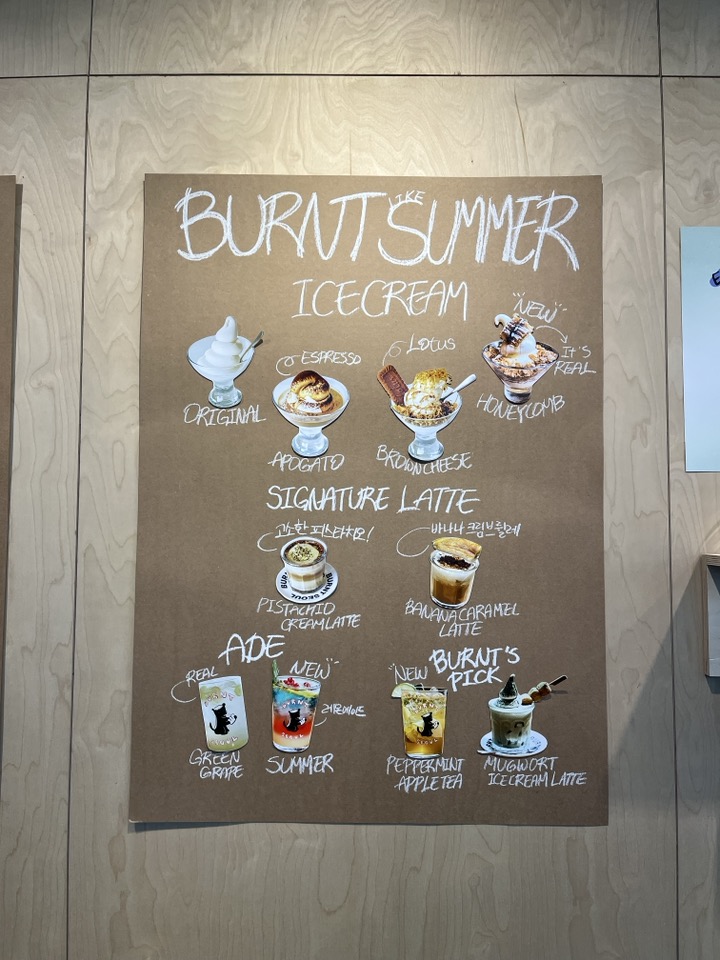 BURNT LIKE SUMMER
ICECREAM
ORIGINAL
ESPRESSO
APOGATO
LOTUS
BROWNCHEESE
"NEW"
It'S
REAL
HONEYCOMB
SIGNATURE LATTE
고소한 피스타치오!
BURNT SEOUL
PISTACHIO
CREAMLATTE
바나나 크림브륄레
BANANACARAMEL
LATTE
ADE
REAL
GREEN
GRAPE
NEW
레몬에이드
SUMMER
BURNT'S
PICK
NEW
PEPPERMINT
APPLETEA
MUGWORT
ICECREAM LATTE